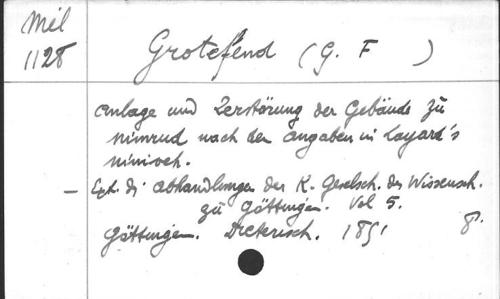 Mil
1128
Grotefend (G. F )
Anlage und Zerstörung der Gebäude zü
Nimrud nach den Angaben in Layard's
Niniveh.
— Ext. d: Abhandlungen der K. Geselsch. der Wissensch.
zü Göttingen. Vol 5.
Göttingen. Dieterisch. 1851 8°.